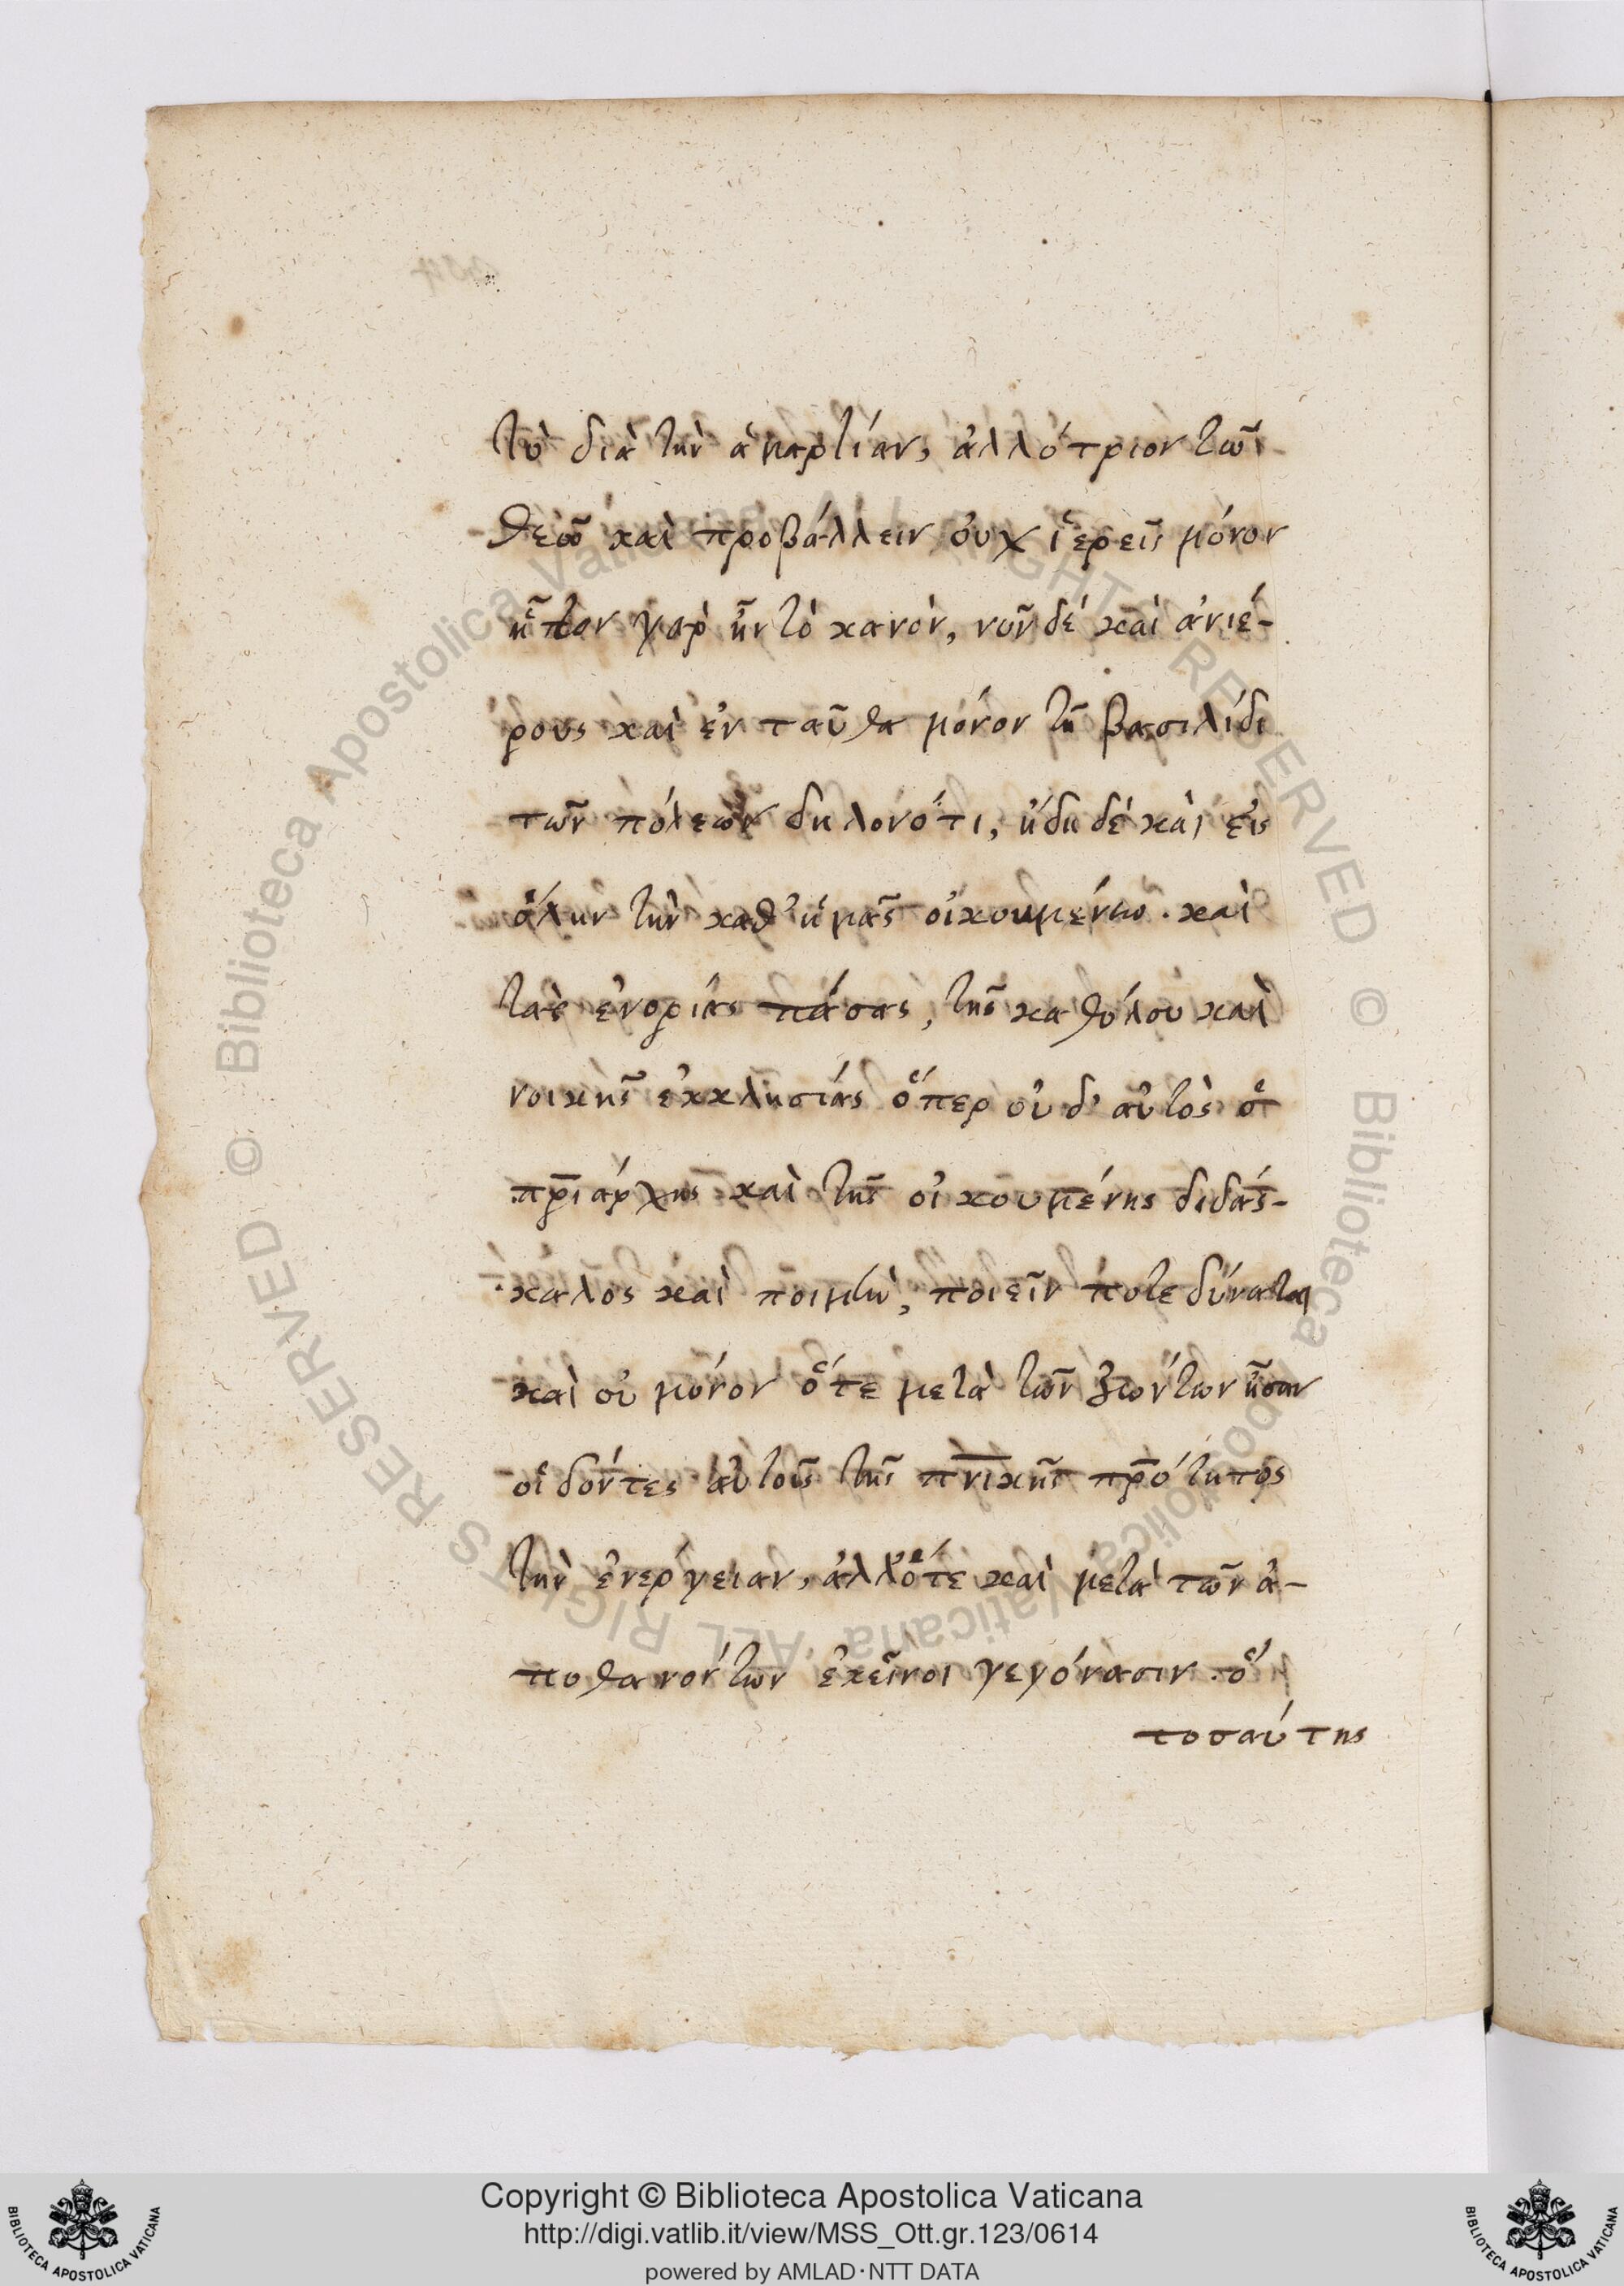 τὸ διὰ τὴν ἁμαρτίαν, ἀλλότριον τῶι
θεῶ καὶ προβάλλειν οὐχ ἱερεῖς μόνον
ἧττον γὰρ ἦν τὸ κακὸν, νῦν δέ καὶ ἀνιέ-
ρους καὶ ἐνταῦθα μόνον τῆ βασιλίδι
τῶν πόλεων δηλονότι, ἤδη δέ καὶ εἰς
ὅλην τὴν καθ' ἡμᾶς οἰκουμένην. καὶ
τὰς ἐνορίας πάσας, τῆς καθόλου καὶ
νοικῆς ἐκκλησίας ὅπερ οὐδ' αὐτὸς ὁ
πρ̅ιάρχης καὶ τῆς οἰκουμένης διδάσ-
καλος καὶ ποιμὴν, ποιεῖν ποτε δύναται
καὶ οὐ μόνον ὅτε μετὰ τῶν ζώντων ἦσαν
οἱ δόντες αὐτοῖς τῆς πν̅ικῆς πρ̅ότητος
τὴν ἐνέργειαν, ἀλλ' ὅτε καὶ μετὰ τῶν ἀ-
ποθανόντων ἐκεῖνοι γεγόνασιν. ὅ
τοσαύτης
Copyright © Biblioteca Apostolica Vaticana
http://digi.vatlib.it/view/MSS_Ott.gr.123/0614
powered by AMLAD·NTT DATA
BIBLIOTECA APOSTOLICA VATICANA
BIBLIOTECA APOSTOLICA VATICANA
Biblioteca Apostolica Vaticana ALL RIGHTS RESERVED ©
Biblioteca Apostolica Vaticana ALL RIGHTS RESERVED ©